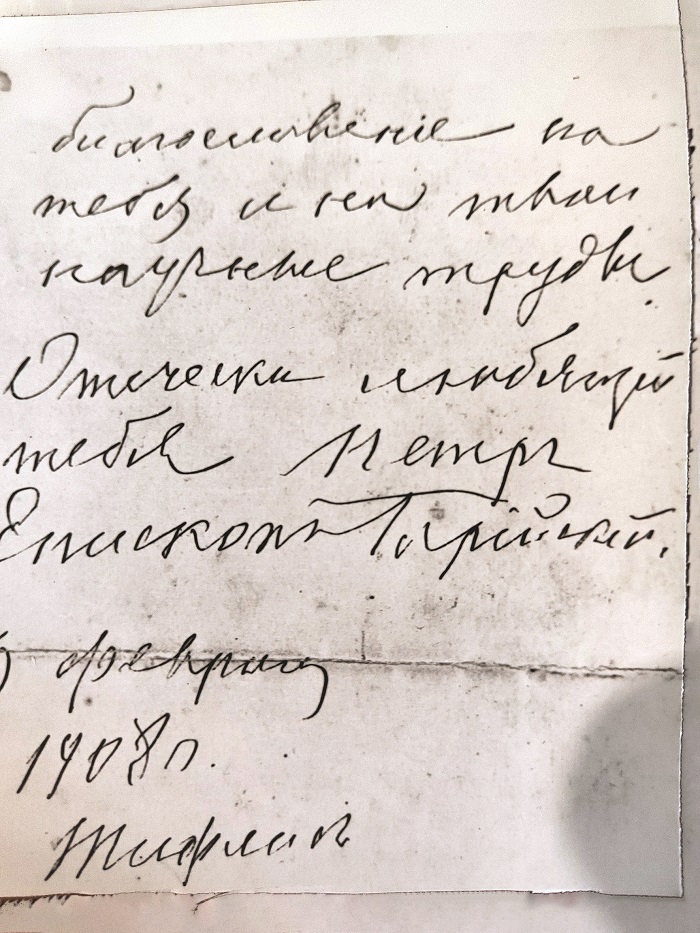 благословеніе на
тебя и на твои
научные труды.
Отечески любящій
тебя Петръ
Епископъ Горійскій.
февраля
1908 г.
Тифлисъ